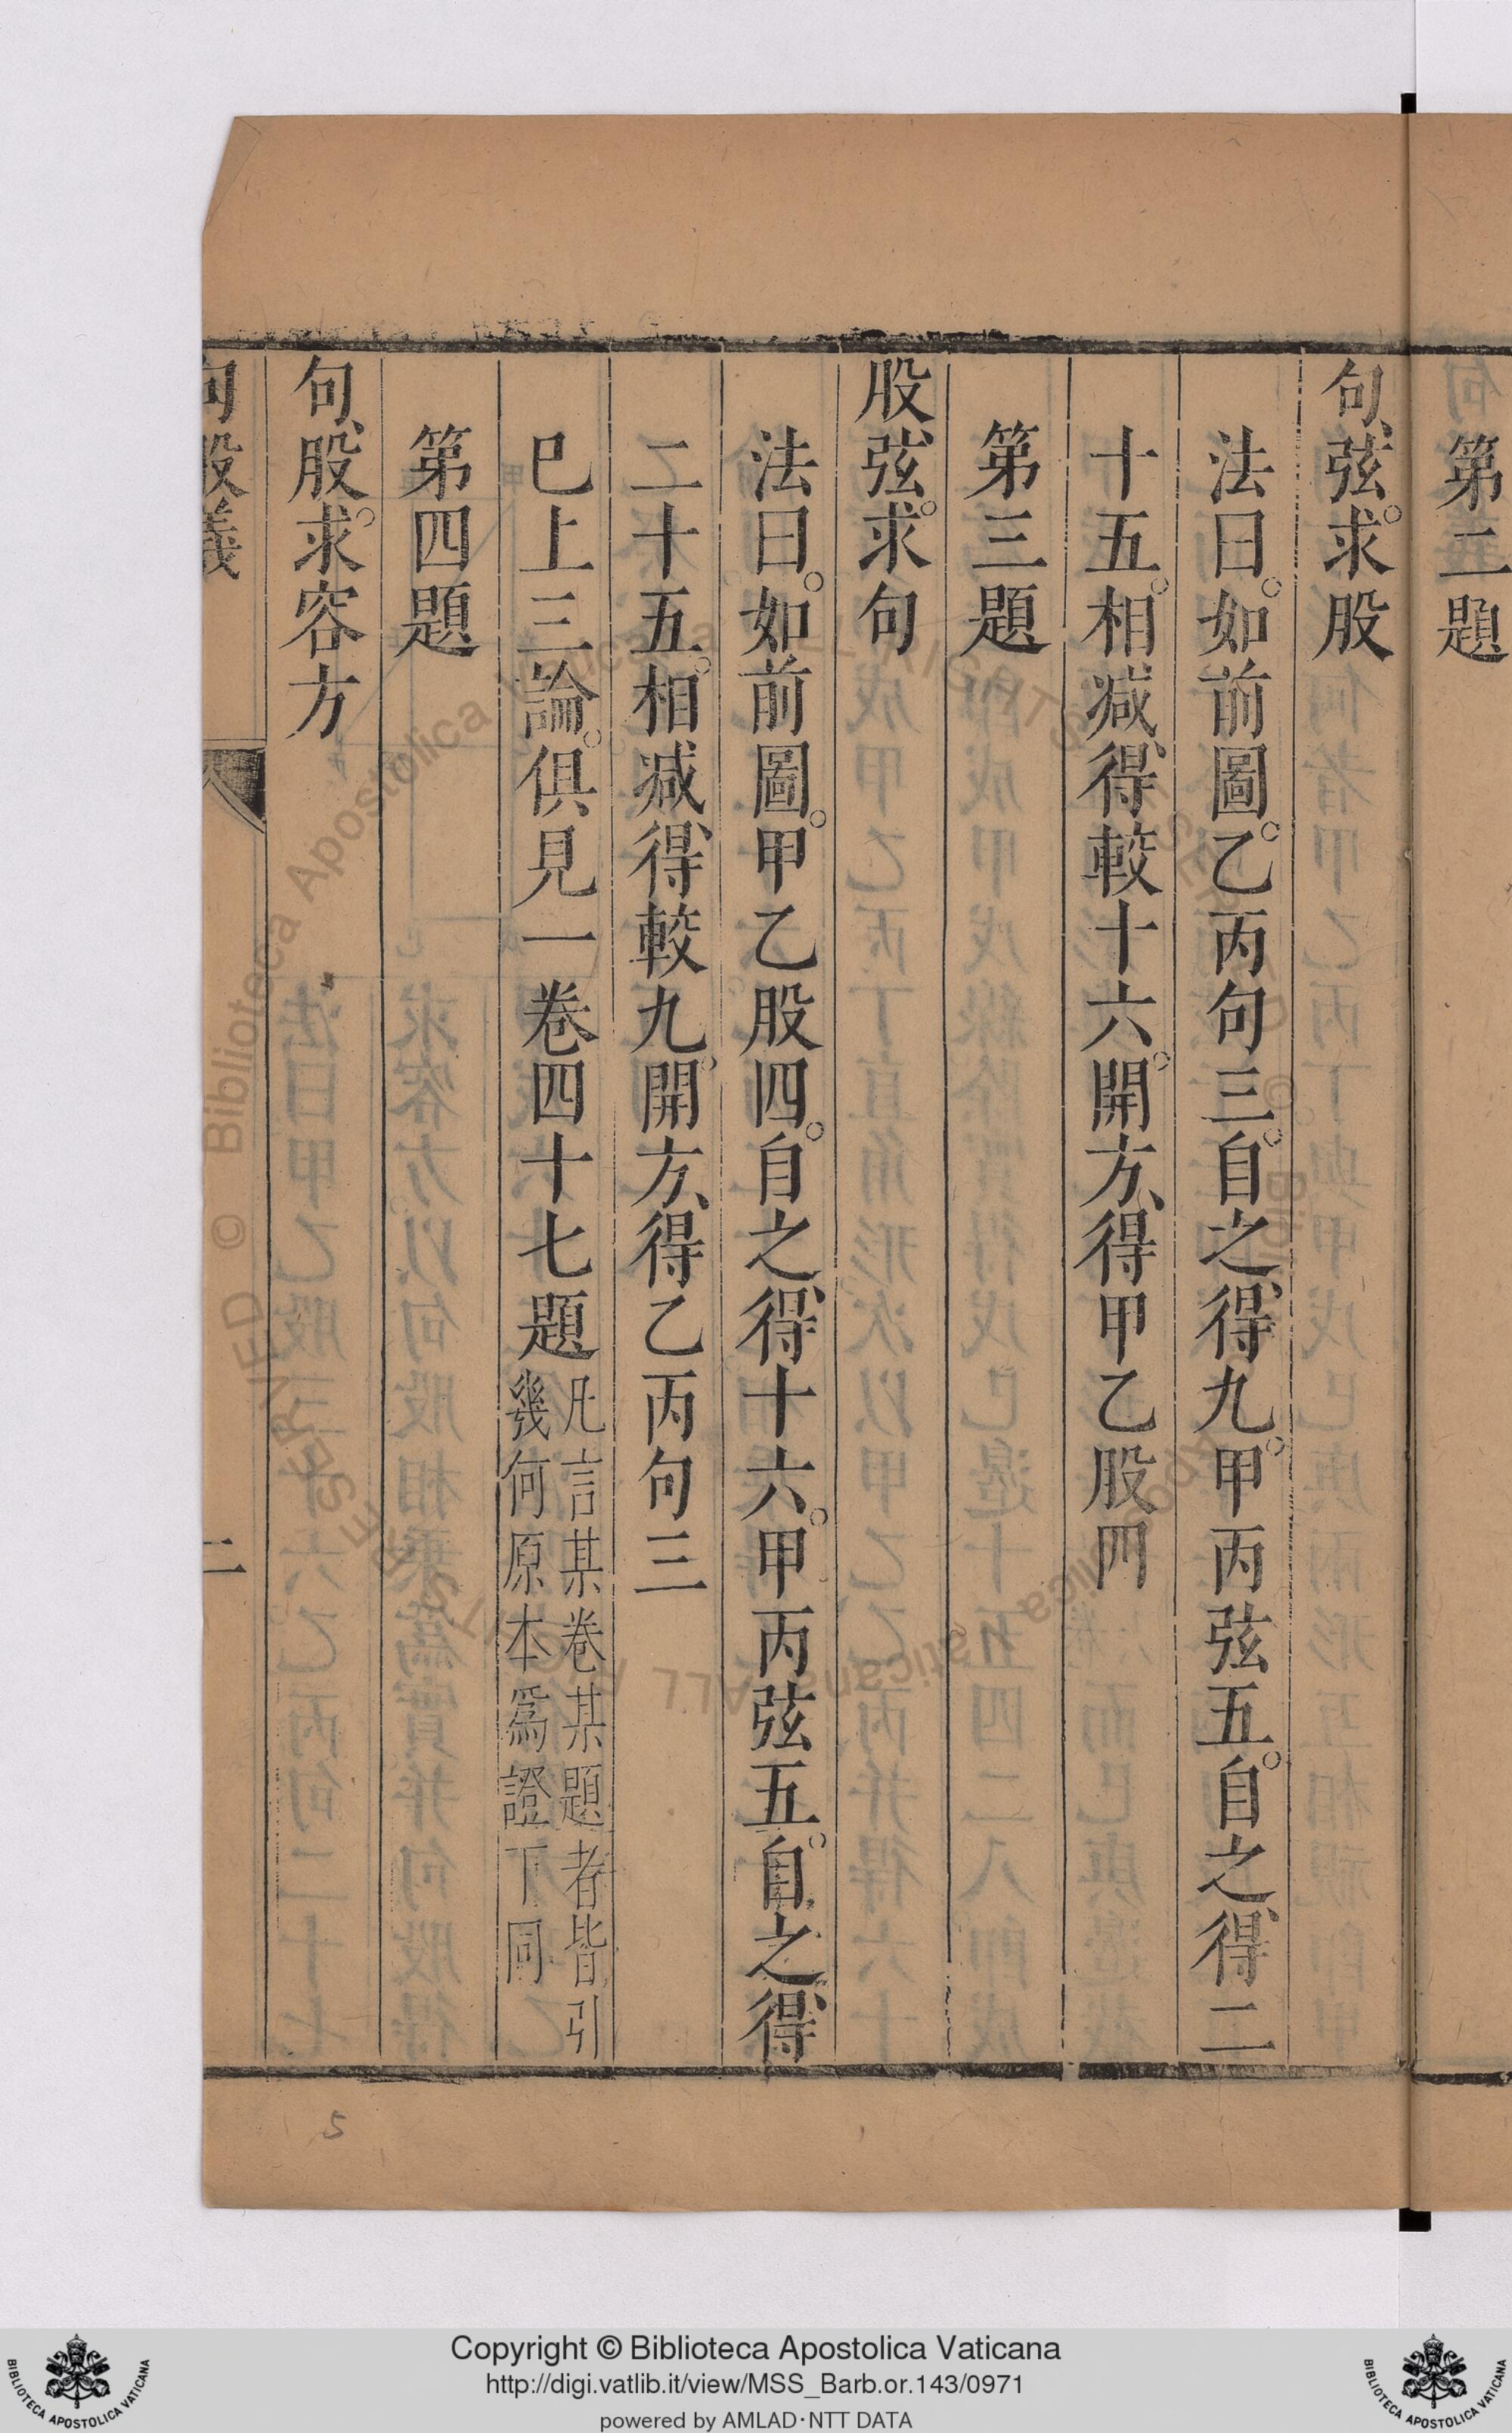 第二題
句、弦。求股
法曰。如前圖。乙丙句三。自之、得九。甲丙弦五。自之、得二
十五。相减、得較十六。開方、得甲乙股四
第三題
股、弦。求句
法曰。如前圖。甲乙股四。自之、得十六。甲丙弦五。自之、得
二十五。相减、得較九。開方、得乙丙句三
巳上三論。俱見一卷四十七題
凡言某卷某題者皆引
幾何原本爲證下同
第四題
句、股。求容方
句股義
二
5
Copyright © Biblioteca Apostolica Vaticana
http://digi.vatlib.it/view/MSS_Barb.or.143/0971
powered by AMLAD·NTT DATA
BIBLIOTECA APOSTOLICA VATICANA
BIBLIOTECA APOSTOLICA VATICANA